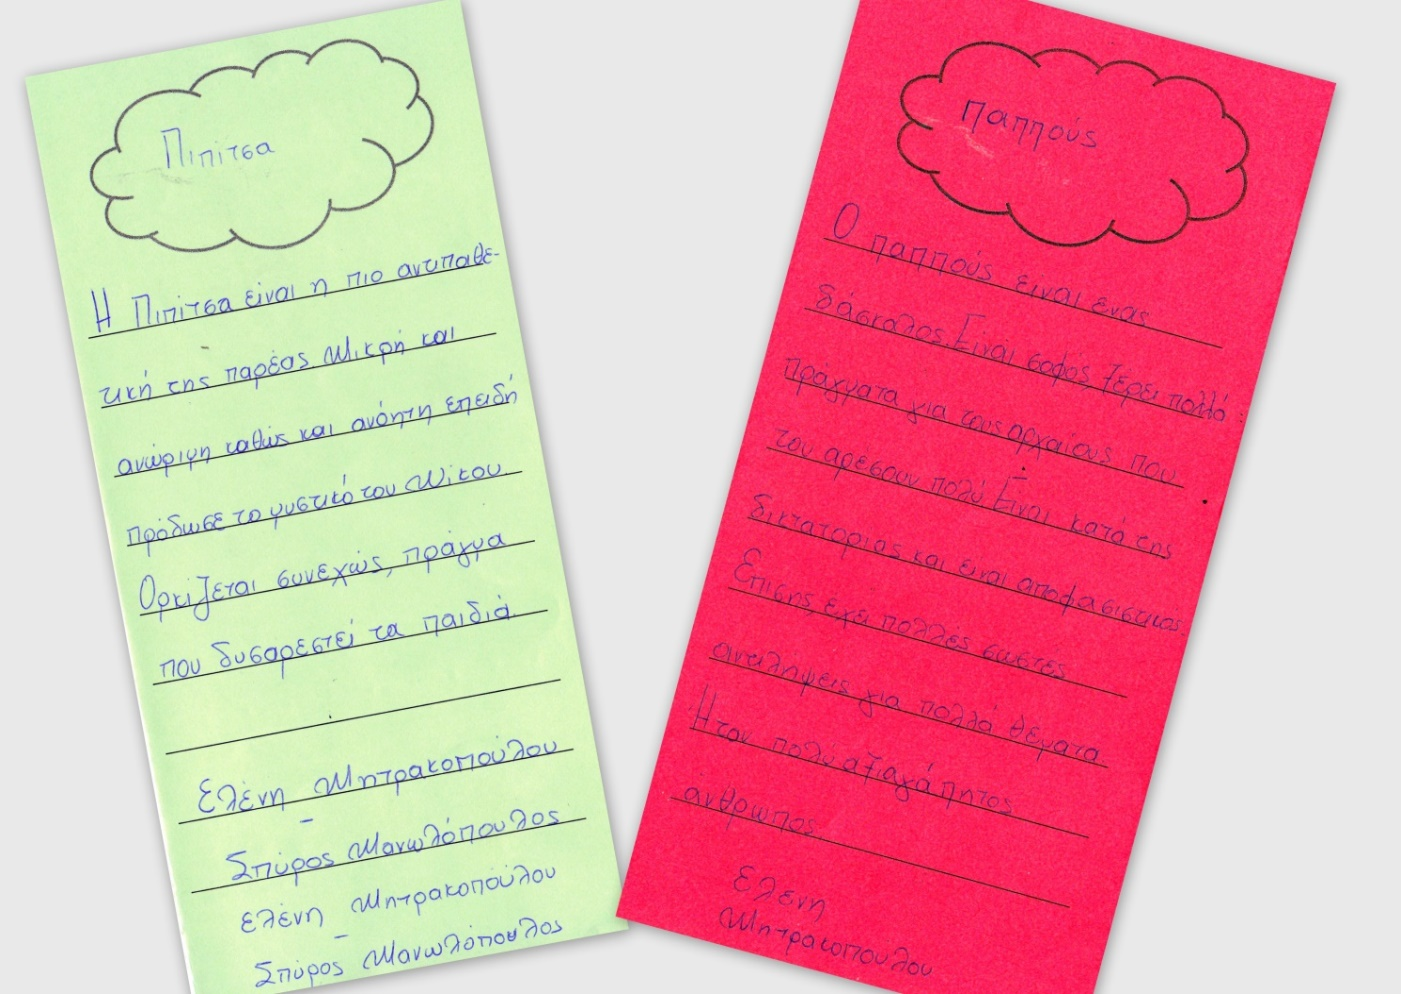 Πιπίτσα
Η Πιπίτσα είναι η πιο αντιπαθε-
τική της παρέας. Μικρή και
ανώριμη καθώς και ανόητη επειδή
πρόδωσε το μυστικό του Νίκου.
Ορκίζεται συνεχώς, πράγμα
που δυσαρεστεί τα παιδιά.
Ελένη - Μητρακοπούλου
Σπύρος Μανωλόπουλος
Ελένη - Μητρακοπούλου
Σπύρος Μανωλόπουλος
Παππούς
Ο παππούς είναι ενας
δάσκαλος. Είναι σοφός ξέρει πολλά
πράγματα για τους αρχαίους που
του αρεσουν πολύ. Είναι κατά της
δικτατορίας και είναι αποφασιστικός.
Επισης έχει πολλές σωστές
αντιλήψεις για πολλά θέματα
Ήταν πολύ αξιαγάπητος
άνθρωπος.
Ελένη
Μητρακοπούλου